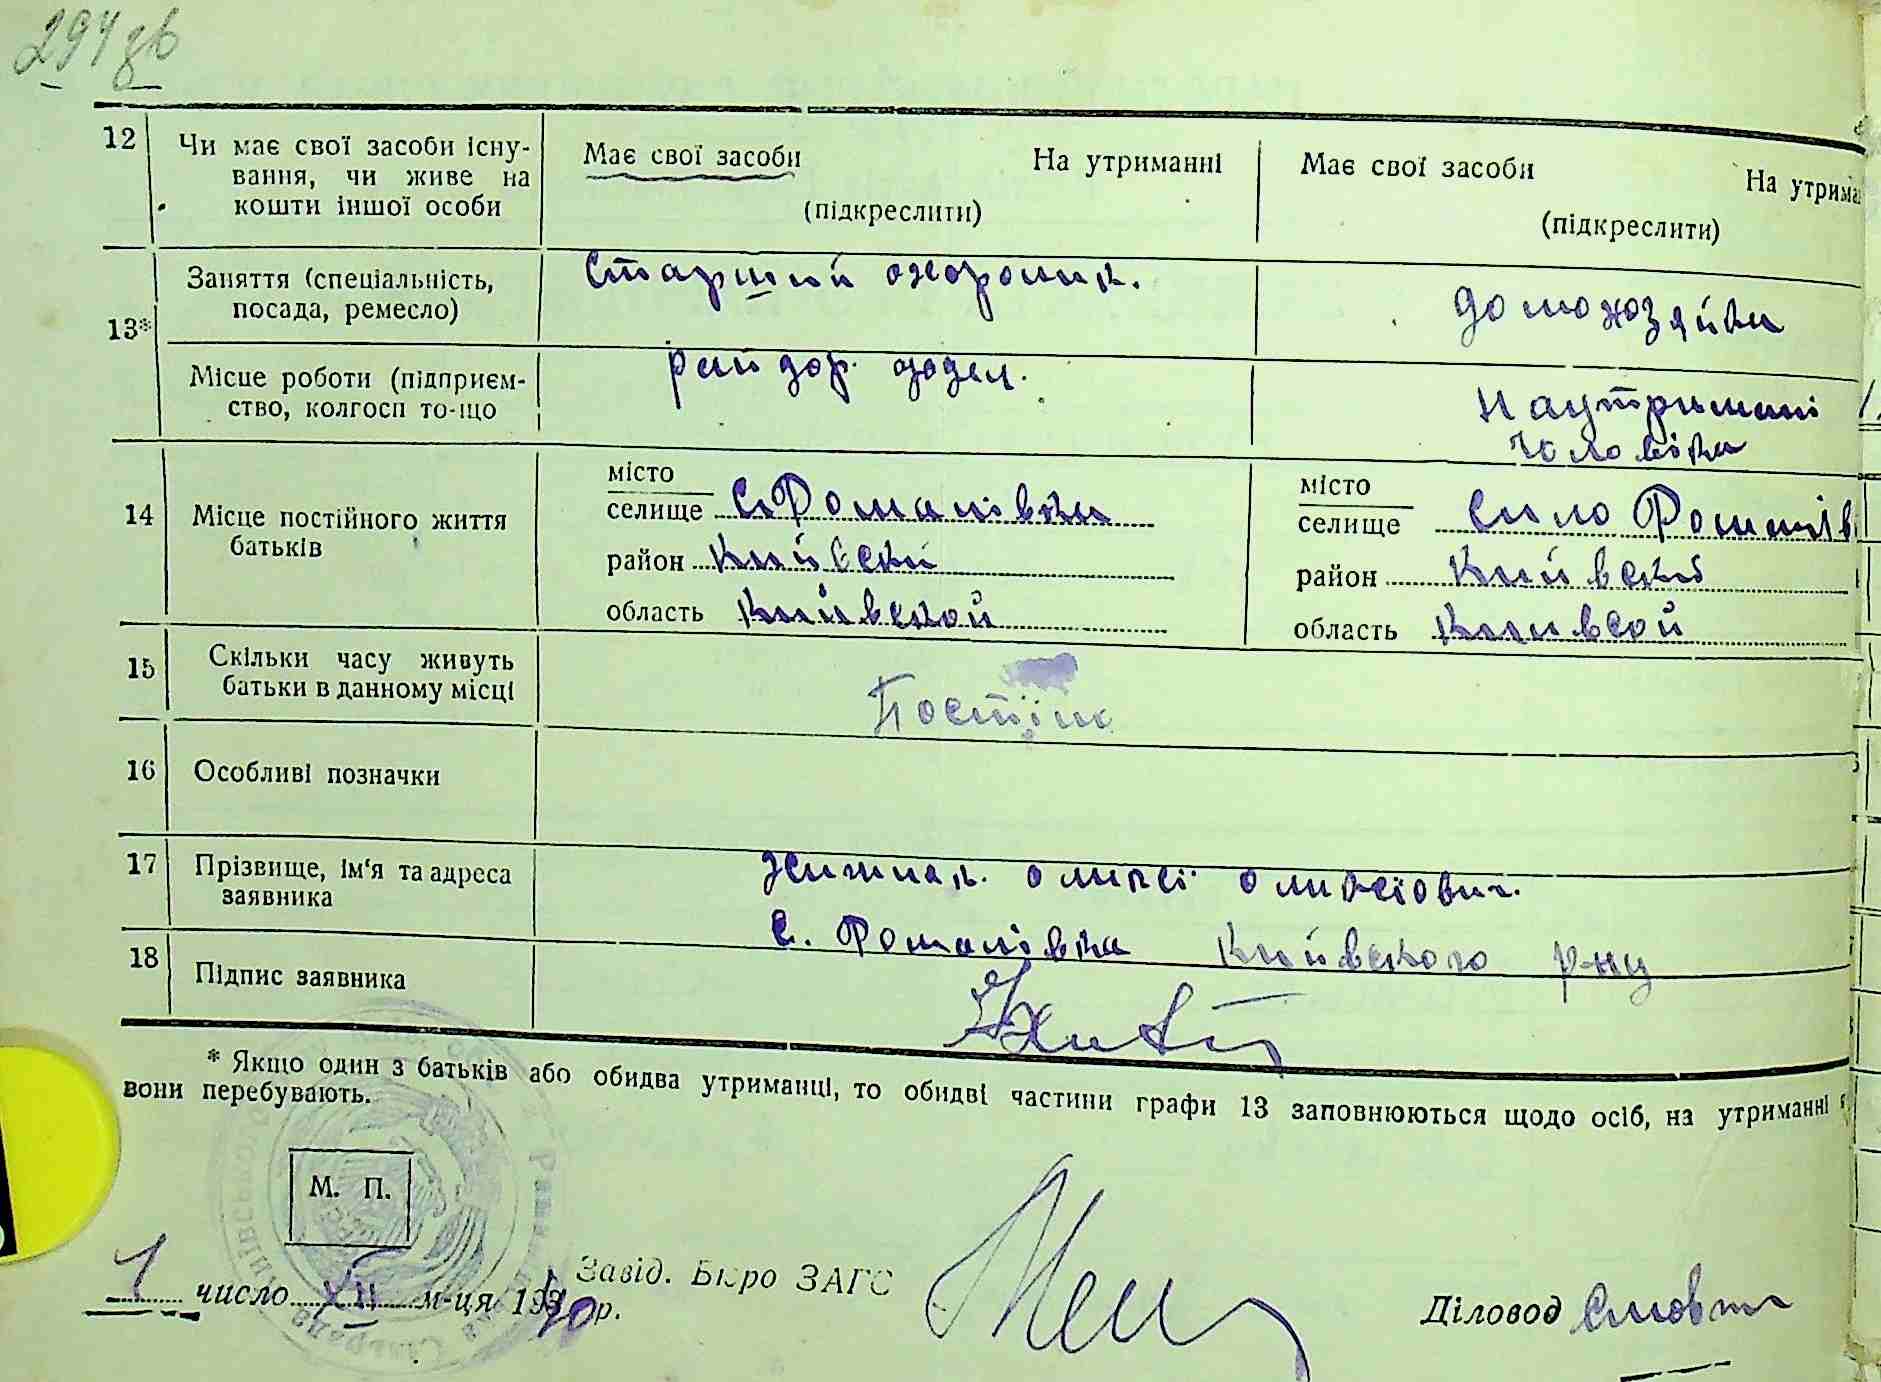 294 зв
12 Чи має свої засоби існу-
вання, чи живе на
кошти іншої особи
Має свої засоби На утриманні
(підкреслити)
Має свої засоби На утрима
(підкреслити)
13*
Заняття (спеціальність,
посада, ремесло)
Старший охороник.
домохозяйка
Місце роботи (підприєм-
ство, колгосп то-що
рай дор.
На утримані
чоловіка
14 Місце постійного життя
батьків
місто
селище с Романівка
район
область Київской
місто
селище село
район Київский
область
15 Скільки часу живуть
батьки в данному місці
16 Особливі позначки
17 Прізвище, ім'я та адреса
заявника
с. Романівка Київского р-ну
18 Підпис заявника
* Якщо один з батьків або обидва утриманці, то обидві частини графи 13 заповнюються щодо осіб, на утриманні
вони перебувають.
М. П.
1 число XII м-ця 1940 р.
Завід. Бюро ЗАГС
Діловод